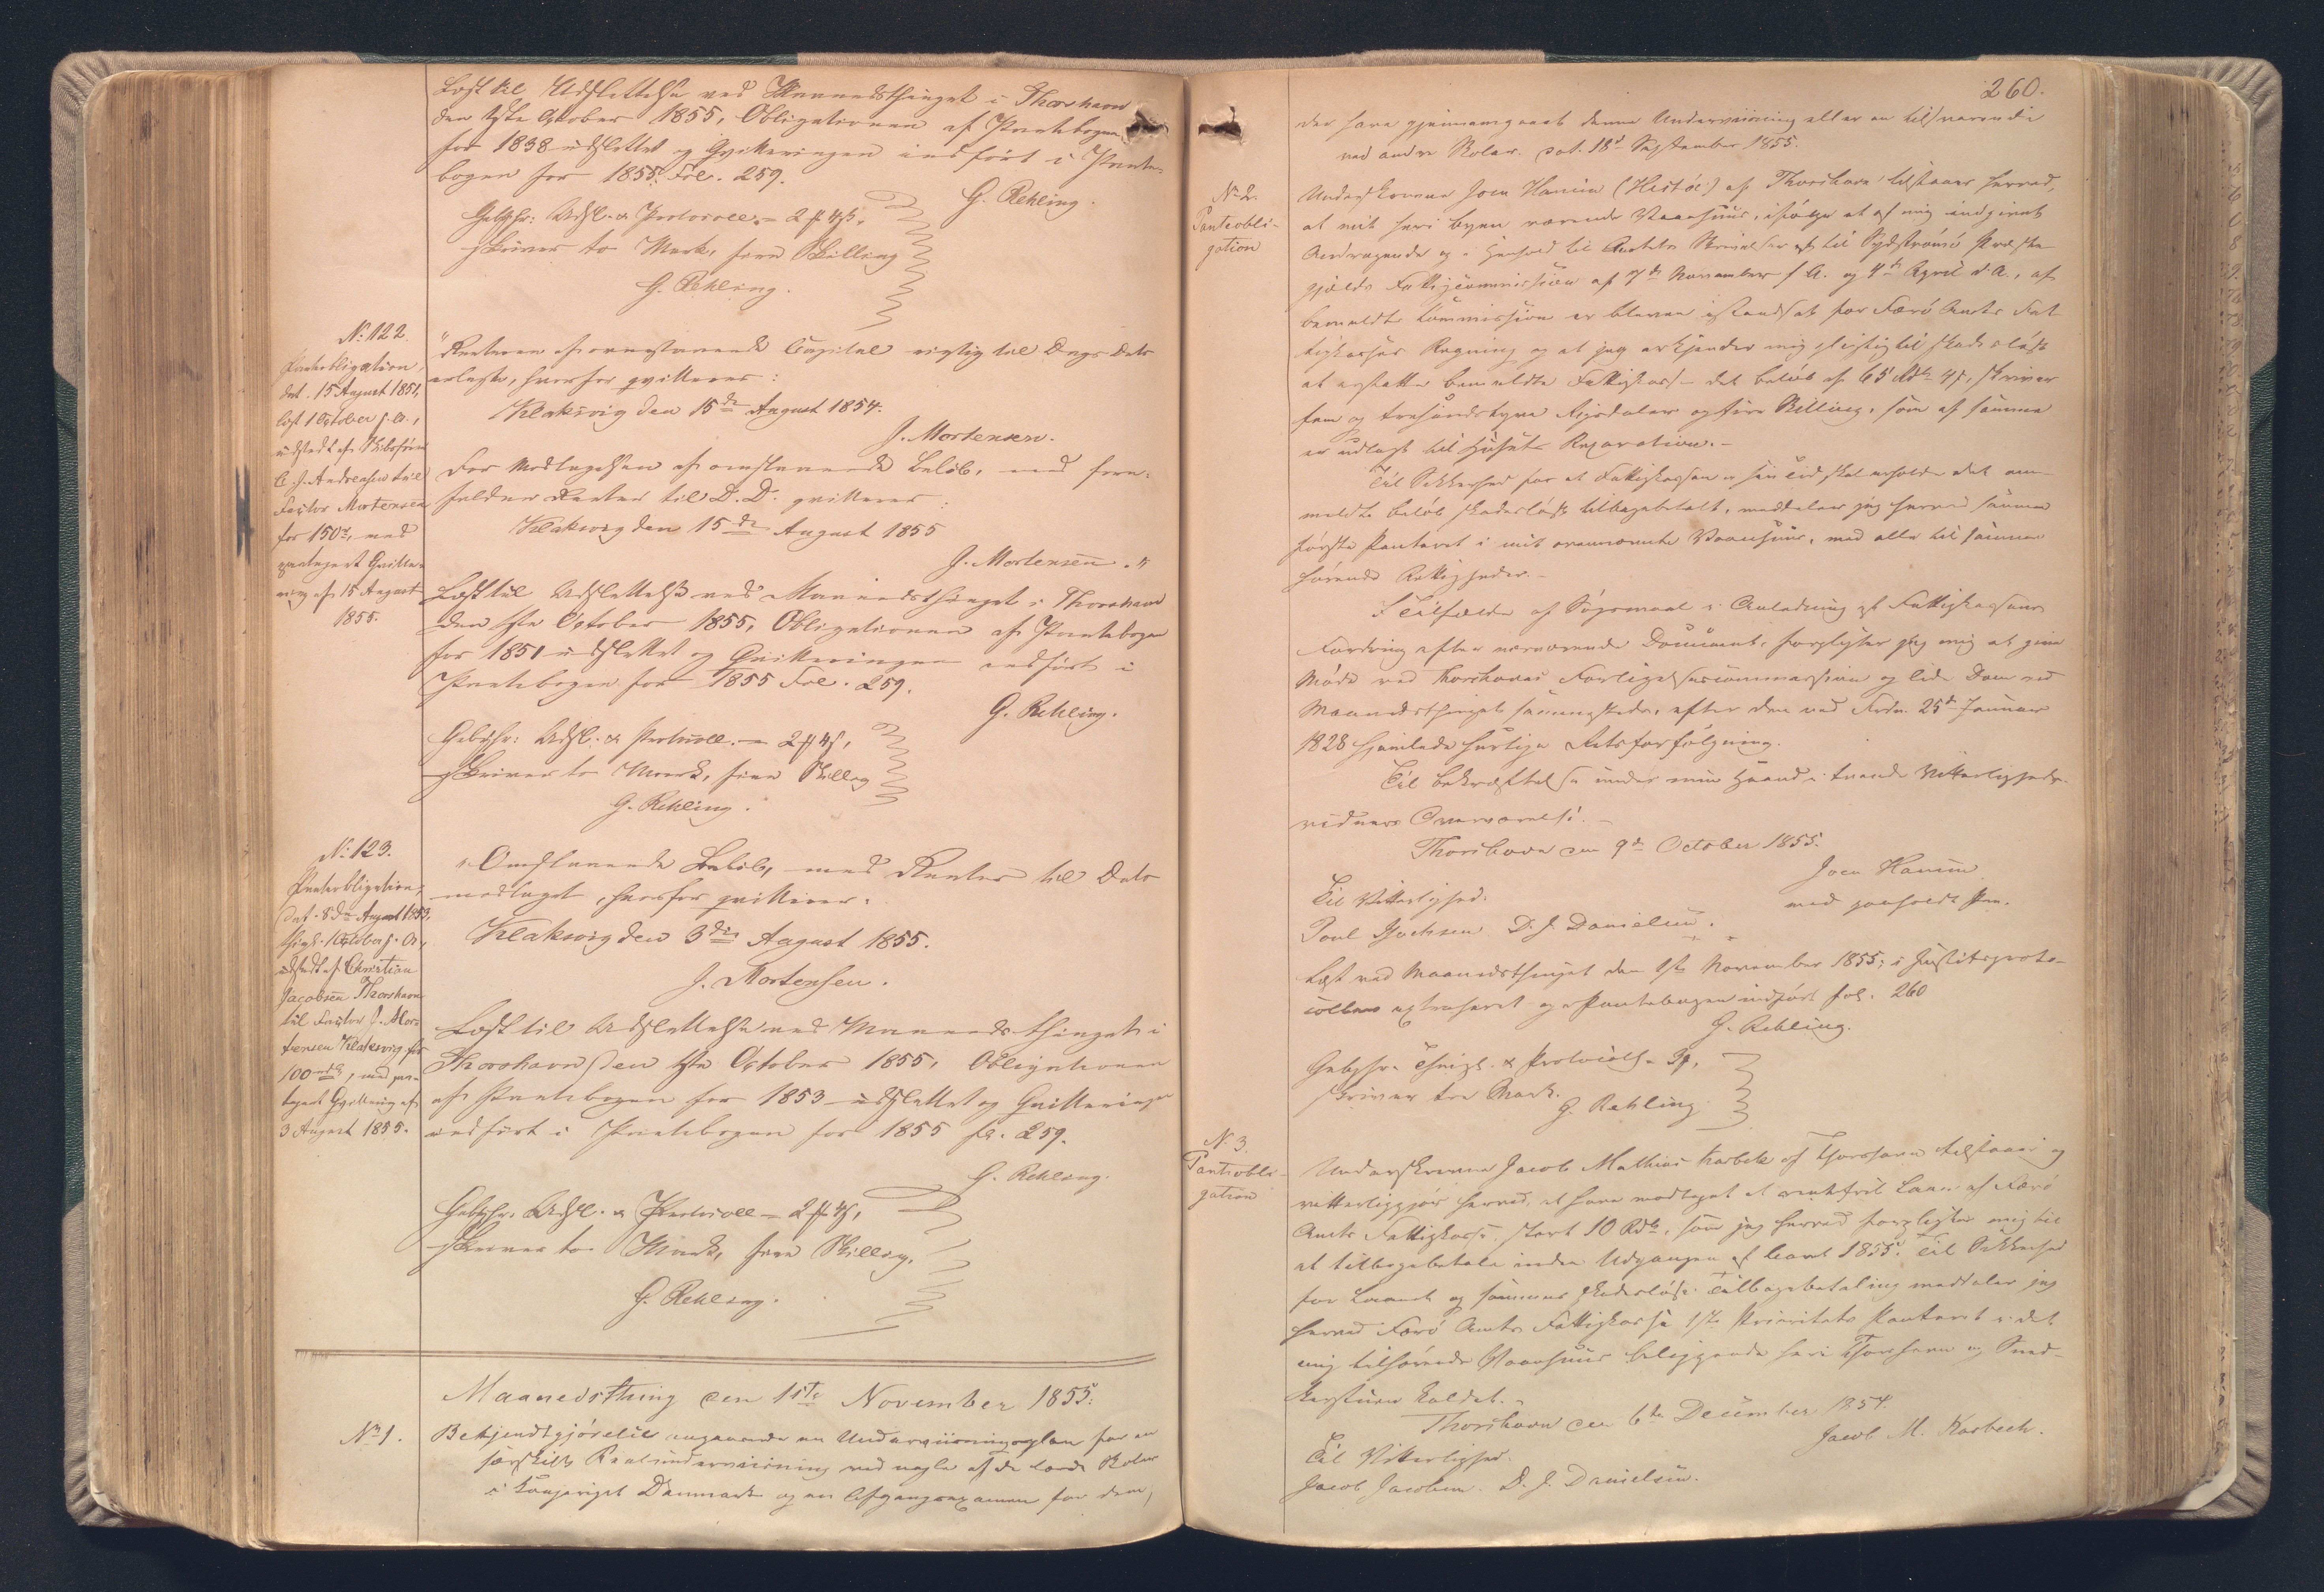 Læst til Udslettelse ved Maanedsthinget i Thorshavn
den 1ste October 1855, Obligationen af Pantebogen
for 1838 udslettet og Qvitteringen indført i Pante-
bogen for 1855 Fol. 259.
G. Rehling.
Gebyhr: Udsl. & Protocoll. = 2 # 4 β,
skriver to Mark, fire Skilling
G. Rehling.
No: 122.
Panteobligation,
dat. 15 August 1851,
læst 1 October s. A.,
udstedt af
C. J. Andreasen til
Factor Mortensen
for 150 rd, med
paategnet Qvitte-
ring af 15 August
1855.
"Renterne af ovenstaaende Capital rigtig til Dags Dato
erlagte, hvorfor qvitteres:
Klaksvig den 15de August 1854.
J. Mortensen.
For Modtagelsen af omstaaende Beløb, med for-
faldne Renter til D. D. qvitteres:
Klaksvig den 15de August 1855
J. Mortensen."
Læst til Udslettelse ved Maanedsthinget i Thorshavn
den 1ste October 1855, Obligationen af Pantebogen
for 1851 udslettet og Qvitteringen indført i
Pantebogen for 1855 Fol. 259.
G. Rehling.
Gebyhr: Udsl. & Protocoll. = 2 # 4 β,
skriver to Mark, fire Skilling
G. Rehling.
No: 123.
Panteobligation,
dat. 8de August 1853,
thingl. 1 October s. A.,
udstedt af Christian
Jacobsen Thorshavn
til Factor J. Mor-
tensen Klaksvig for
100 rd, med paa-
tegnet Qvittering af
3 August 1855.
"Omstaaende Beløb, med Renter til Dato
modtaget, hvorfor qvitteres.
Klaksvig den 3die August 1855.
J. Mortensen.
Læst til Udslettelse ved Maanedsthinget i
Thorshavn den 1ste October 1855, Obligationen
af Pantebogen for 1853 udslettet og Qvitteringen
indført i Pantebogen for 1855 fol. 259.
G. Rehling.
Gebyhr. Udsl. & Protocoll = 2 # 4 β,
skriver to Mark, fire Skilling.
G. Rehling.
Maanedsthing den 1ste November 1855.
No 1. Bekjendtgjørelse angaaende en Underviisningsplan for en
særskilt Realunderviisning ved nogle af de lærde Skoler
i Kongeriget Danmark og en Afgangsexamen for dem,
260.
der have gjennemgaaet denne Underviisning eller en tilsvarende
ved andre Skoler. dat. 18de September 1855.
No 2.
Panteobli-
gation
Underskrevne Joen Hansen af Thorshavn tilstaaer herved,
at mit her i Byen værende Vaanhuus, ifølge et af mig indgivet
Andragende og i Henhold til Amtets Skrivelser til Sydstrømø Præste-
gjælds Fattigcommission af 7de November f. A. og 4de April d. A., af
bemeldte Commission er bleven istandsat for Færø Amts Fat-
tigkasses Regning og at jeg erkjender mig pligtig til skadesløst
at erstatte bemeldte Fattigkasse det Beløb af 65 Rd 4 β, skriver
fem og tresindstyve Rigsdaler og fire Skilling, som af samme
er udlagt til Husets Reparation.
Til Sikkerhed for at Fattigkassen i sin Tid skal erholde det an-
meldte Beløb skadesløst tilbagebetalt, meddeler jeg herved samme
første Panteret i mit ovennævnte Vaanhuus, med alle til samme
hørende Rettigheder.
I Tilfælde af Søgsmaal i Anledning af Fattigkassens
Fordring efter nærværende Document, forpligter jeg mig at give
Møde ved Thorshavns Forligelsescommission og lide Dom ved
Maanedsthinget sammesteds, efter den ved Frdn. 25de Januar
1828 hjemlede hurtige Retsforfølgning.
Til Bekræftelse under min Haand i tvende Vitterligheds-
vidners Overværelse.
Thorshavn den 9de October 1855.
Joen Hansen
med paaholdt Pen.
Til Vitterlighed:
Poul Joensen D. J. Danielsen.
Læst ved Maanedsthinget den 1ste November 1855, i Justitsproto-
collen extraheret og i Pantebogen indført fol. 260
G. Rehling.
Gebyhr. Thingl. & Protocoll. 3 #,
skriver tre Mark.
G. Rehling
No 3.
Panteobli-
gation
Underskrevne Jacob Mathias Karbech af Thorshavn tilstaaer og
vitterliggjør herved, at have modtaget et rentefrit Laan af Færø
Amts Fattigkasse, stort 10 Rd, som jeg herved forpligter mig til
at tilbagebetale inden Udgangen af Aaret 1855. Til Sikkerhed
for Laanet og sammes skadesløse Tilbagebetaling meddeler jeg
herved Færø Amts Fattigkasse 1ste Prioritets Panteret i det
mig tilhørende Vaanhuus beliggende her i Thorshavn og
kaldet.
Thorshavn den 6te December 1854.
Jacob M. Karbech.
Til Vitterlighed.
Jacob Jacobsen. D. J. Danielsen.